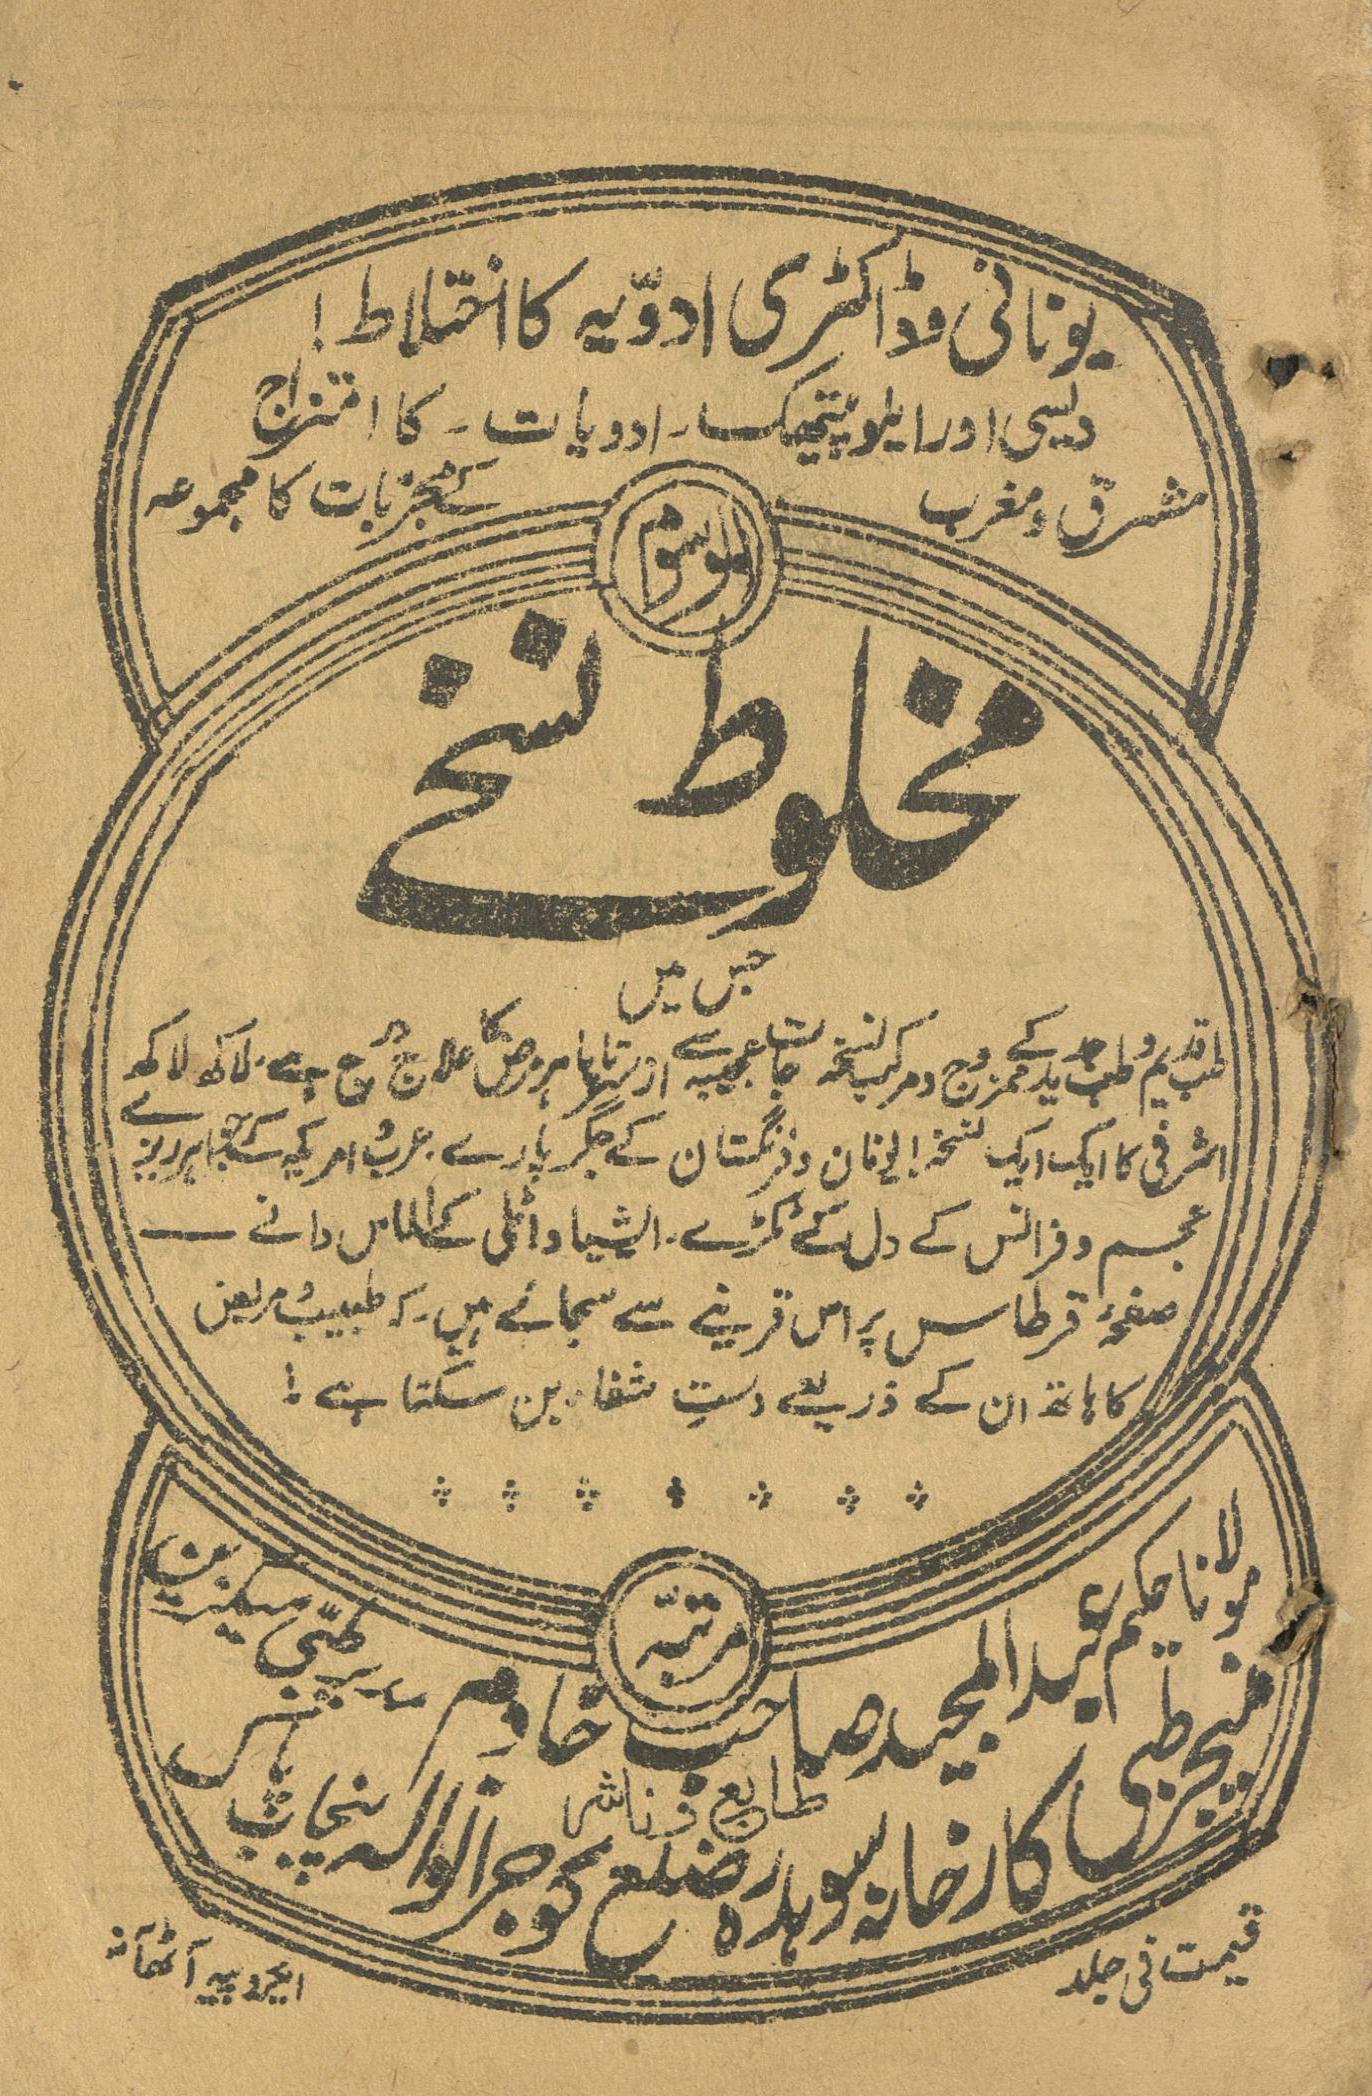 یونانی وڈاکٹری ادویّہ کا اختلاط!
دیسی اور ایلوپیتھیک ادویات۔ کا امتزاج
مشرق و مغرب کے مجربات کا مجموعہ
موسوم
مخلوط نسخے
جس میں
طب قدیم و طب جدید کے ممزوج و مرکب نسخہ جات عجیبہ سے از سرتاپا ہر مرض کا علاج درج ہے۔ لاکھ لاکھ
اشرفی کا ایک ایک نسخہ! یونان و فرنگستان کے جگر پارے۔ عرب و امریکہ کے جواہر ریزے
عجم و فرانس کے دل کے ٹکڑے۔ ایشیا و اٹلی کے الماس دانے —
صفحۂ قرطاس پر اس قرینے سے سجائے ہیں۔ کہ طبیب و مریض
کا ہاتھ ان کے ذریعے دستِ شفا بن سکتا ہے!
مرتبہّ
مولانا حکیم عبدالمجید صاحب خادم ایڈیٹر طبّی میگزین
طابع و ناشر
منیجر طبی کارخانہ سوہدرہ ضلع گوجرانوالہ پنجاب
قیمت فی جلد
ایکروپیہ آٹھ آنہ